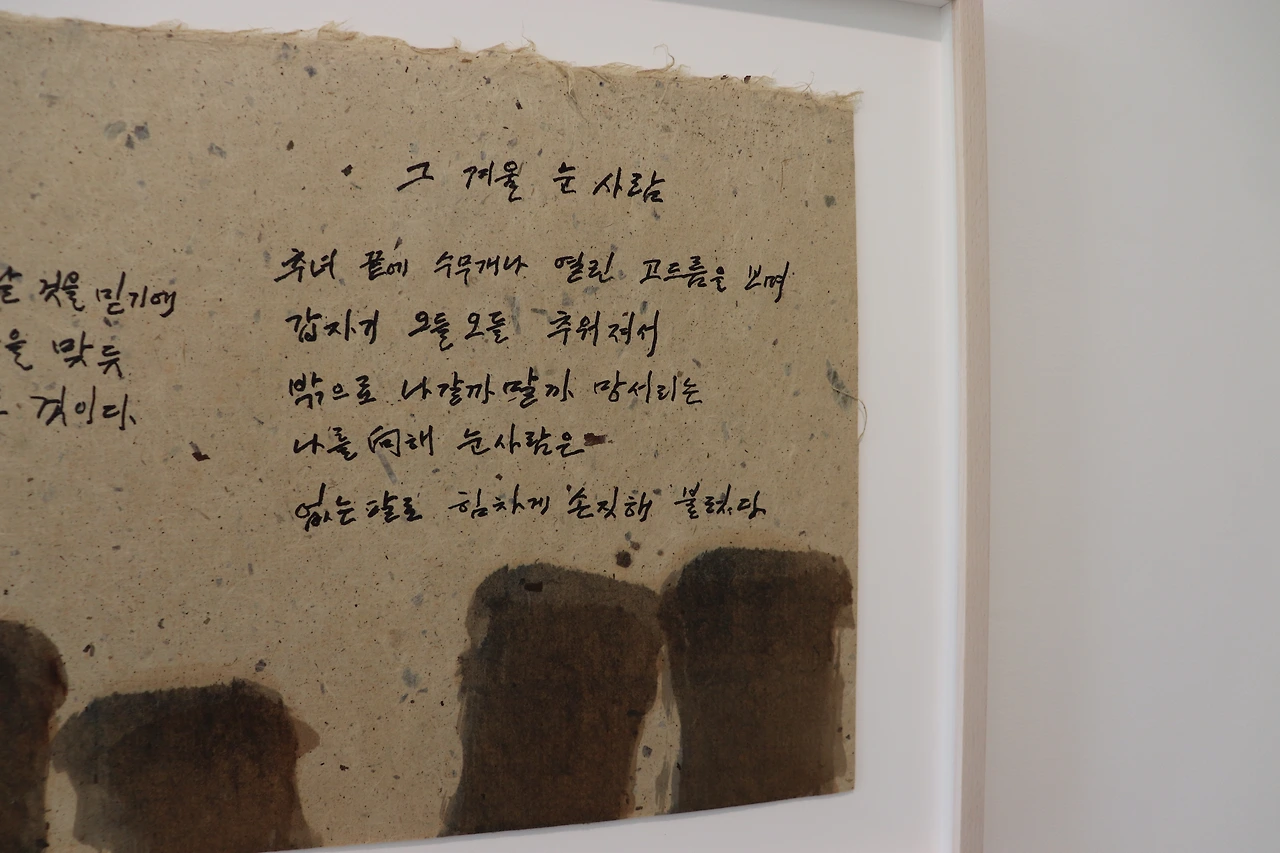 것을 믿기에
을 맞듯
것이다.
그 겨울 눈 사람
추녀 끝에 수무개나 열린 고드름을 보며
갑자기 오들오들 추워져서
밖으로 나갈까 말까 망서리는
나를 向해 눈사람은
없는 팔로 힘차게 손짓해 불렀다.